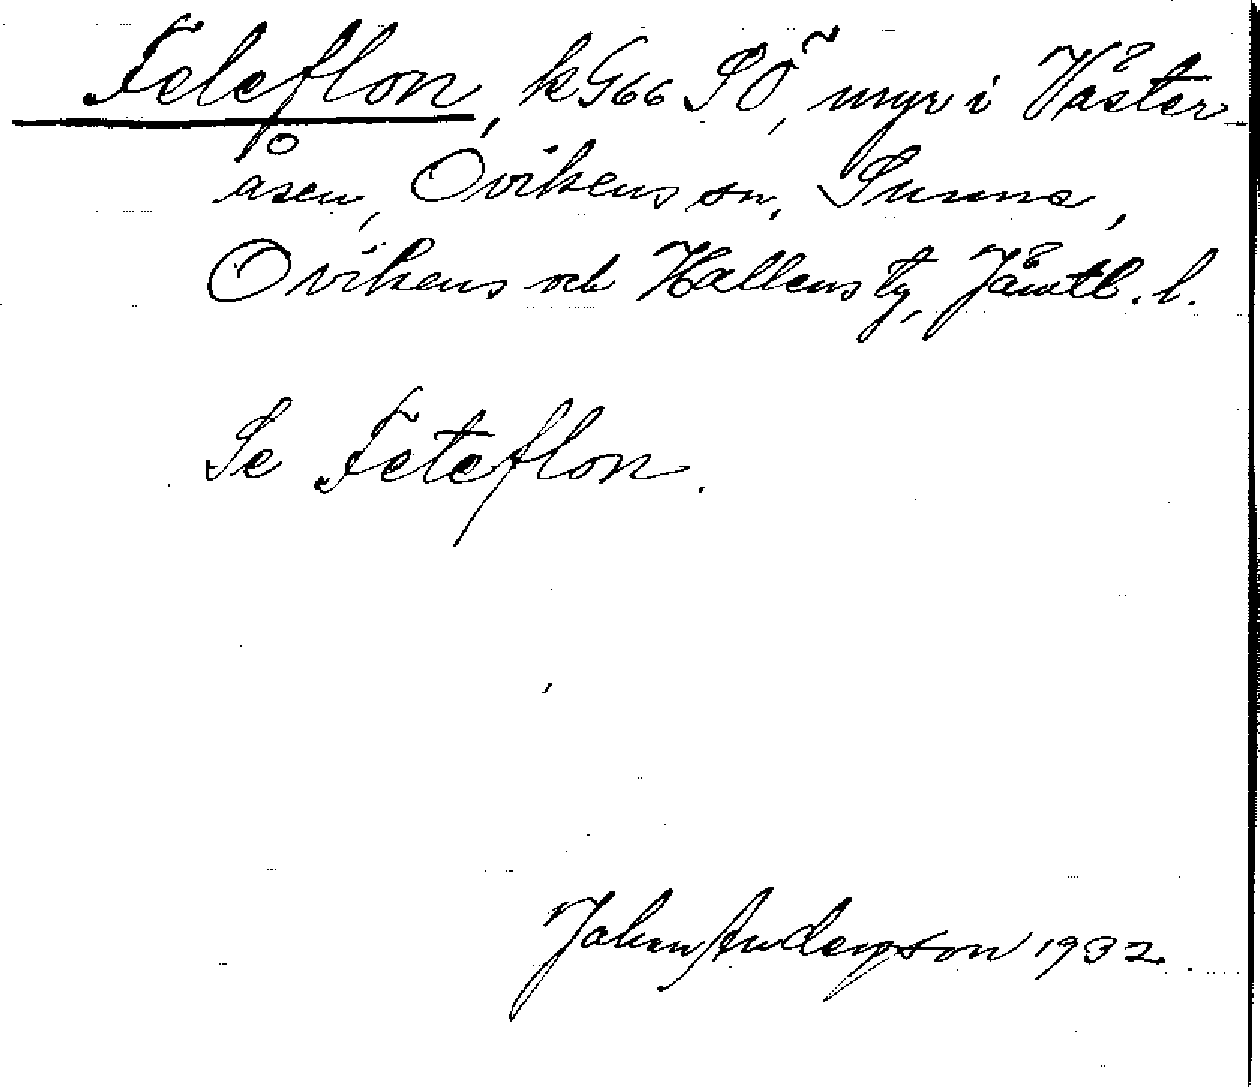 Feleflon, k G66 SÖ, myr i Väster-
åsen, Ovikens sn, Sunne,
Ovikens och Hallens tg, Jämtl. l.
Se Feteflon.
Johan Anderson 1932